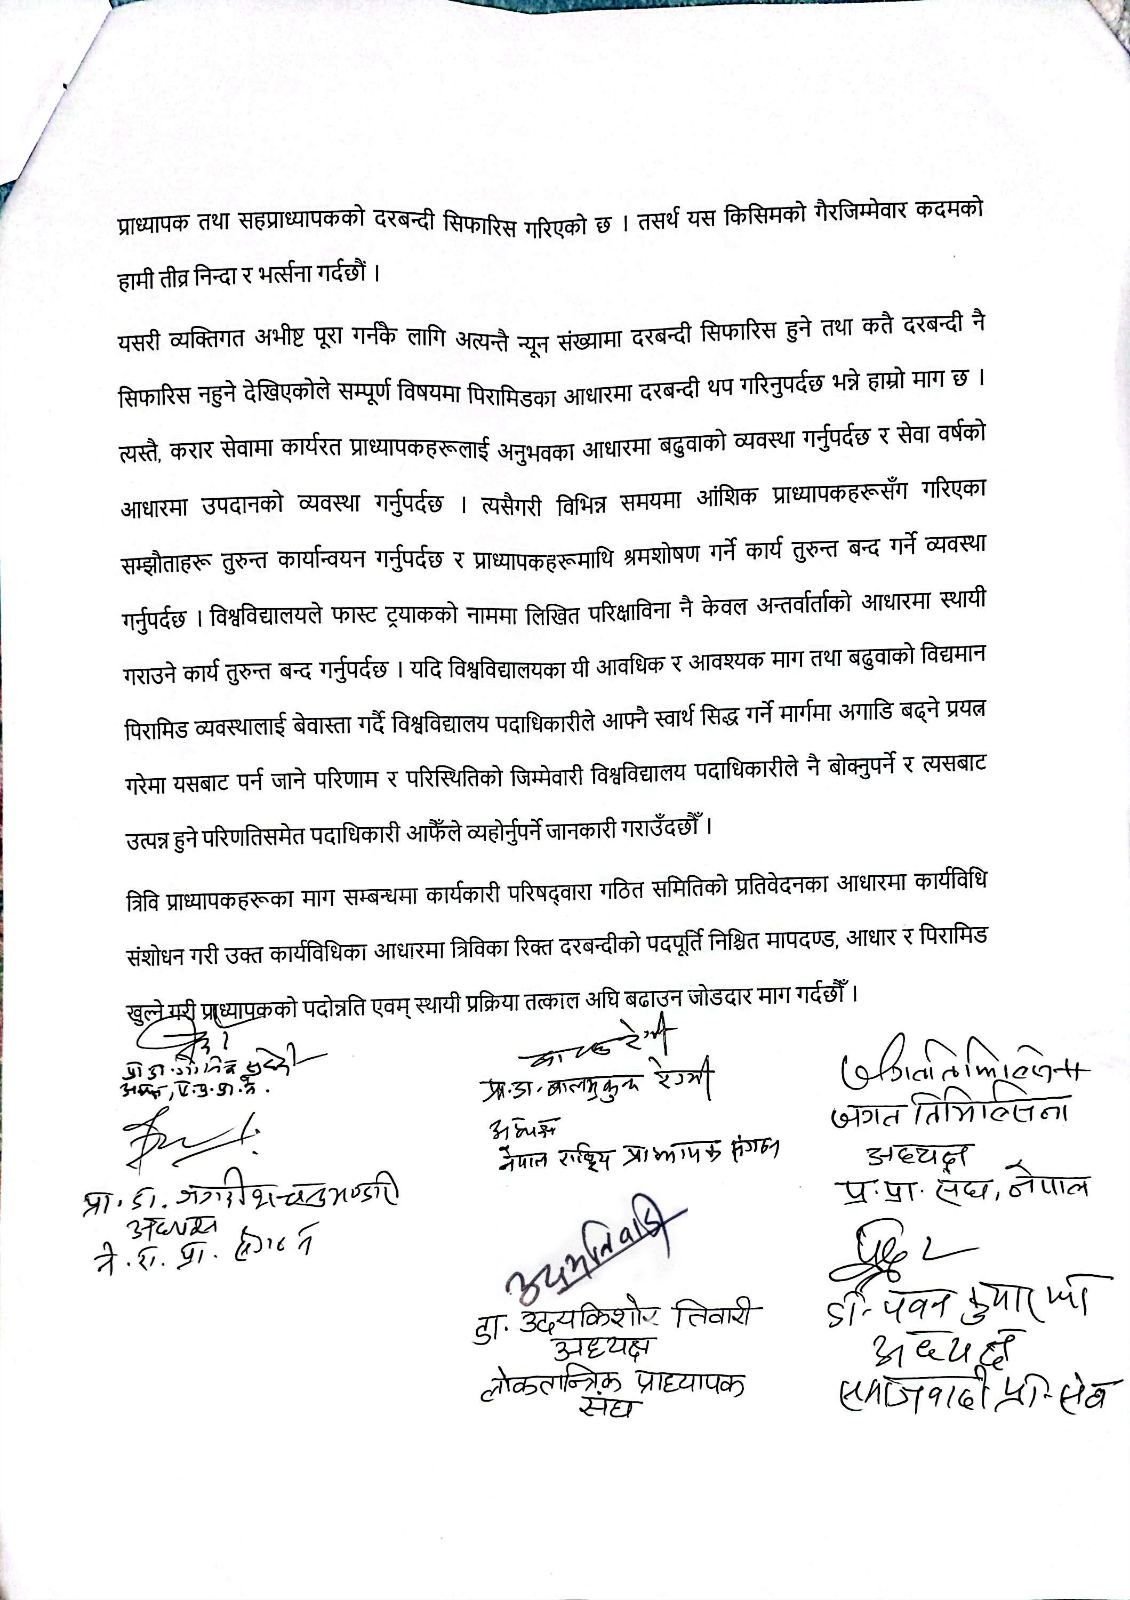 प्राध्यापक तथा सहप्राध्यापकको दरबन्दी सिफारिस गरिएको छ । तसर्थ यस किसिमको गैरजिम्मेवार कदमको
हामी तीव्र निन्दा र भर्त्सना गर्दछौं ।
यसरी व्यक्तिगत अभीष्ट पूरा गर्नकै लागि अत्यन्तै न्यून संख्यामा दरबन्दी सिफारिस हुने तथा कतै दरबन्दी नै
सिफारिस नहुने देखिएकोले सम्पूर्ण विषयमा पिरामिडका आधारमा दरबन्दी थप गरिनुपर्दछ भन्ने हाम्रो माग छ ।
त्यस्तै, करार सेवामा कार्यरत प्राध्यापकहरूलाई अनुभवका आधारमा बढुवाको व्यवस्था गर्नुपर्दछ र सेवा वर्षको
आधारमा उपदानको व्यवस्था गर्नुपर्दछ । त्यसैगरी विभिन्न समयमा आंशिक प्राध्यापकहरूसँग गरिएका
सम्झौताहरू तुरुन्त कार्यान्वयन गर्नुपर्दछ र प्राध्यापकहरूमाथि श्रमशोषण गर्ने कार्य तुरुन्त बन्द गर्ने व्यवस्था
गर्नुपर्दछ । विश्वविद्यालयले फास्ट ट्र्याकको नाममा लिखित परिक्षाविना नै केवल अन्तर्वार्ताको आधारमा स्थायी
गराउने कार्य तुरुन्त बन्द गर्नुपर्दछ । यदि विश्वविद्यालयका यी आवधिक र आवश्यक माग तथा बढुवाको विद्यमान
पिरामिड व्यवस्थालाई बेवास्ता गर्दै विश्वविद्यालय पदाधिकारीले आफ्नै स्वार्थ सिद्ध गर्ने मार्गमा अगाडि बढ्ने प्रयत्न
गरेमा यसबाट पर्न जाने परिणाम र परिस्थितिको जिम्मेवारी विश्वविद्यालय पदाधिकारीले नै बोक्नुपर्ने र त्यसबाट
उत्पन्न हुने परिणतिसमेत पदाधिकारी आफैँले व्यहोर्नुपर्ने जानकारी गराउँदछौँ ।
त्रिवि प्राध्यापकहरूका माग सम्बन्धमा कार्यकारी परिषद्वारा गठित समितिको प्रतिवेदनका आधारमा कार्यविधि
संशोधन गरी उक्त कार्यविधिका आधारमा त्रिविका रिक्त दरबन्दीको पदपूर्ति निश्चित मापदण्ड, आधार र पिरामिड
खुल्ने गरी प्राध्यापकको पदोन्नति एवम् स्थायी प्रक्रिया तत्काल अघि बढाउन जोडदार माग गर्दछौँ ।
प्रा. डा. बालमुकुन्द रेग्मी
अध्यक्ष
नेपाल राष्ट्रिय प्राध्यापक संगठन
जगत तिमिल्सिना
अध्यक्ष
प्र. प्रा. संघ, नेपाल
प्रा. डा. जगदीशचन्द्र भण्डारी
अध्यक्ष
ने. रा. प्रा. संगठन
उदय तिवारी
डा. उदयकिशोर तिवारी
अध्यक्ष
लोकतान्त्रिक प्राध्यापक
संघ
डा. पवन कुमार झा
अध्यक्ष
समाजवादी प्रा. संघ